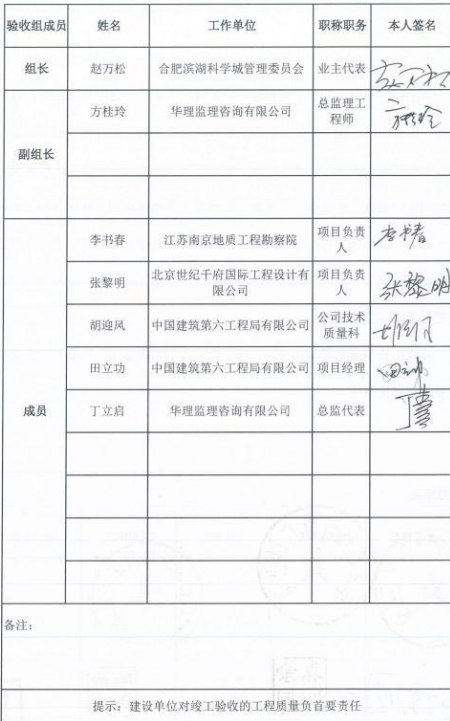 验收组成员 姓名 工作单位 职称职务 本人签名
组长 赵万松 合肥滨湖科学城管理委员会 业主代表
副组长 方桂玲 华理监理咨询有限公司 总监理工
程师
成员 李书春 江苏南京地质工程勘察院 项目负责
人 李书春
张黎明 北京世纪千府国际工程设计有
限公司 项目负责
人 张黎明
胡迎风 中国建筑第六工程局有限公司 公司技术
质量科
田立功 中国建筑第六工程局有限公司 项目经理
丁立启 华理监理咨询有限公司 总监代表
备注：
提示：建设单位对竣工验收的工程质量负首要责任